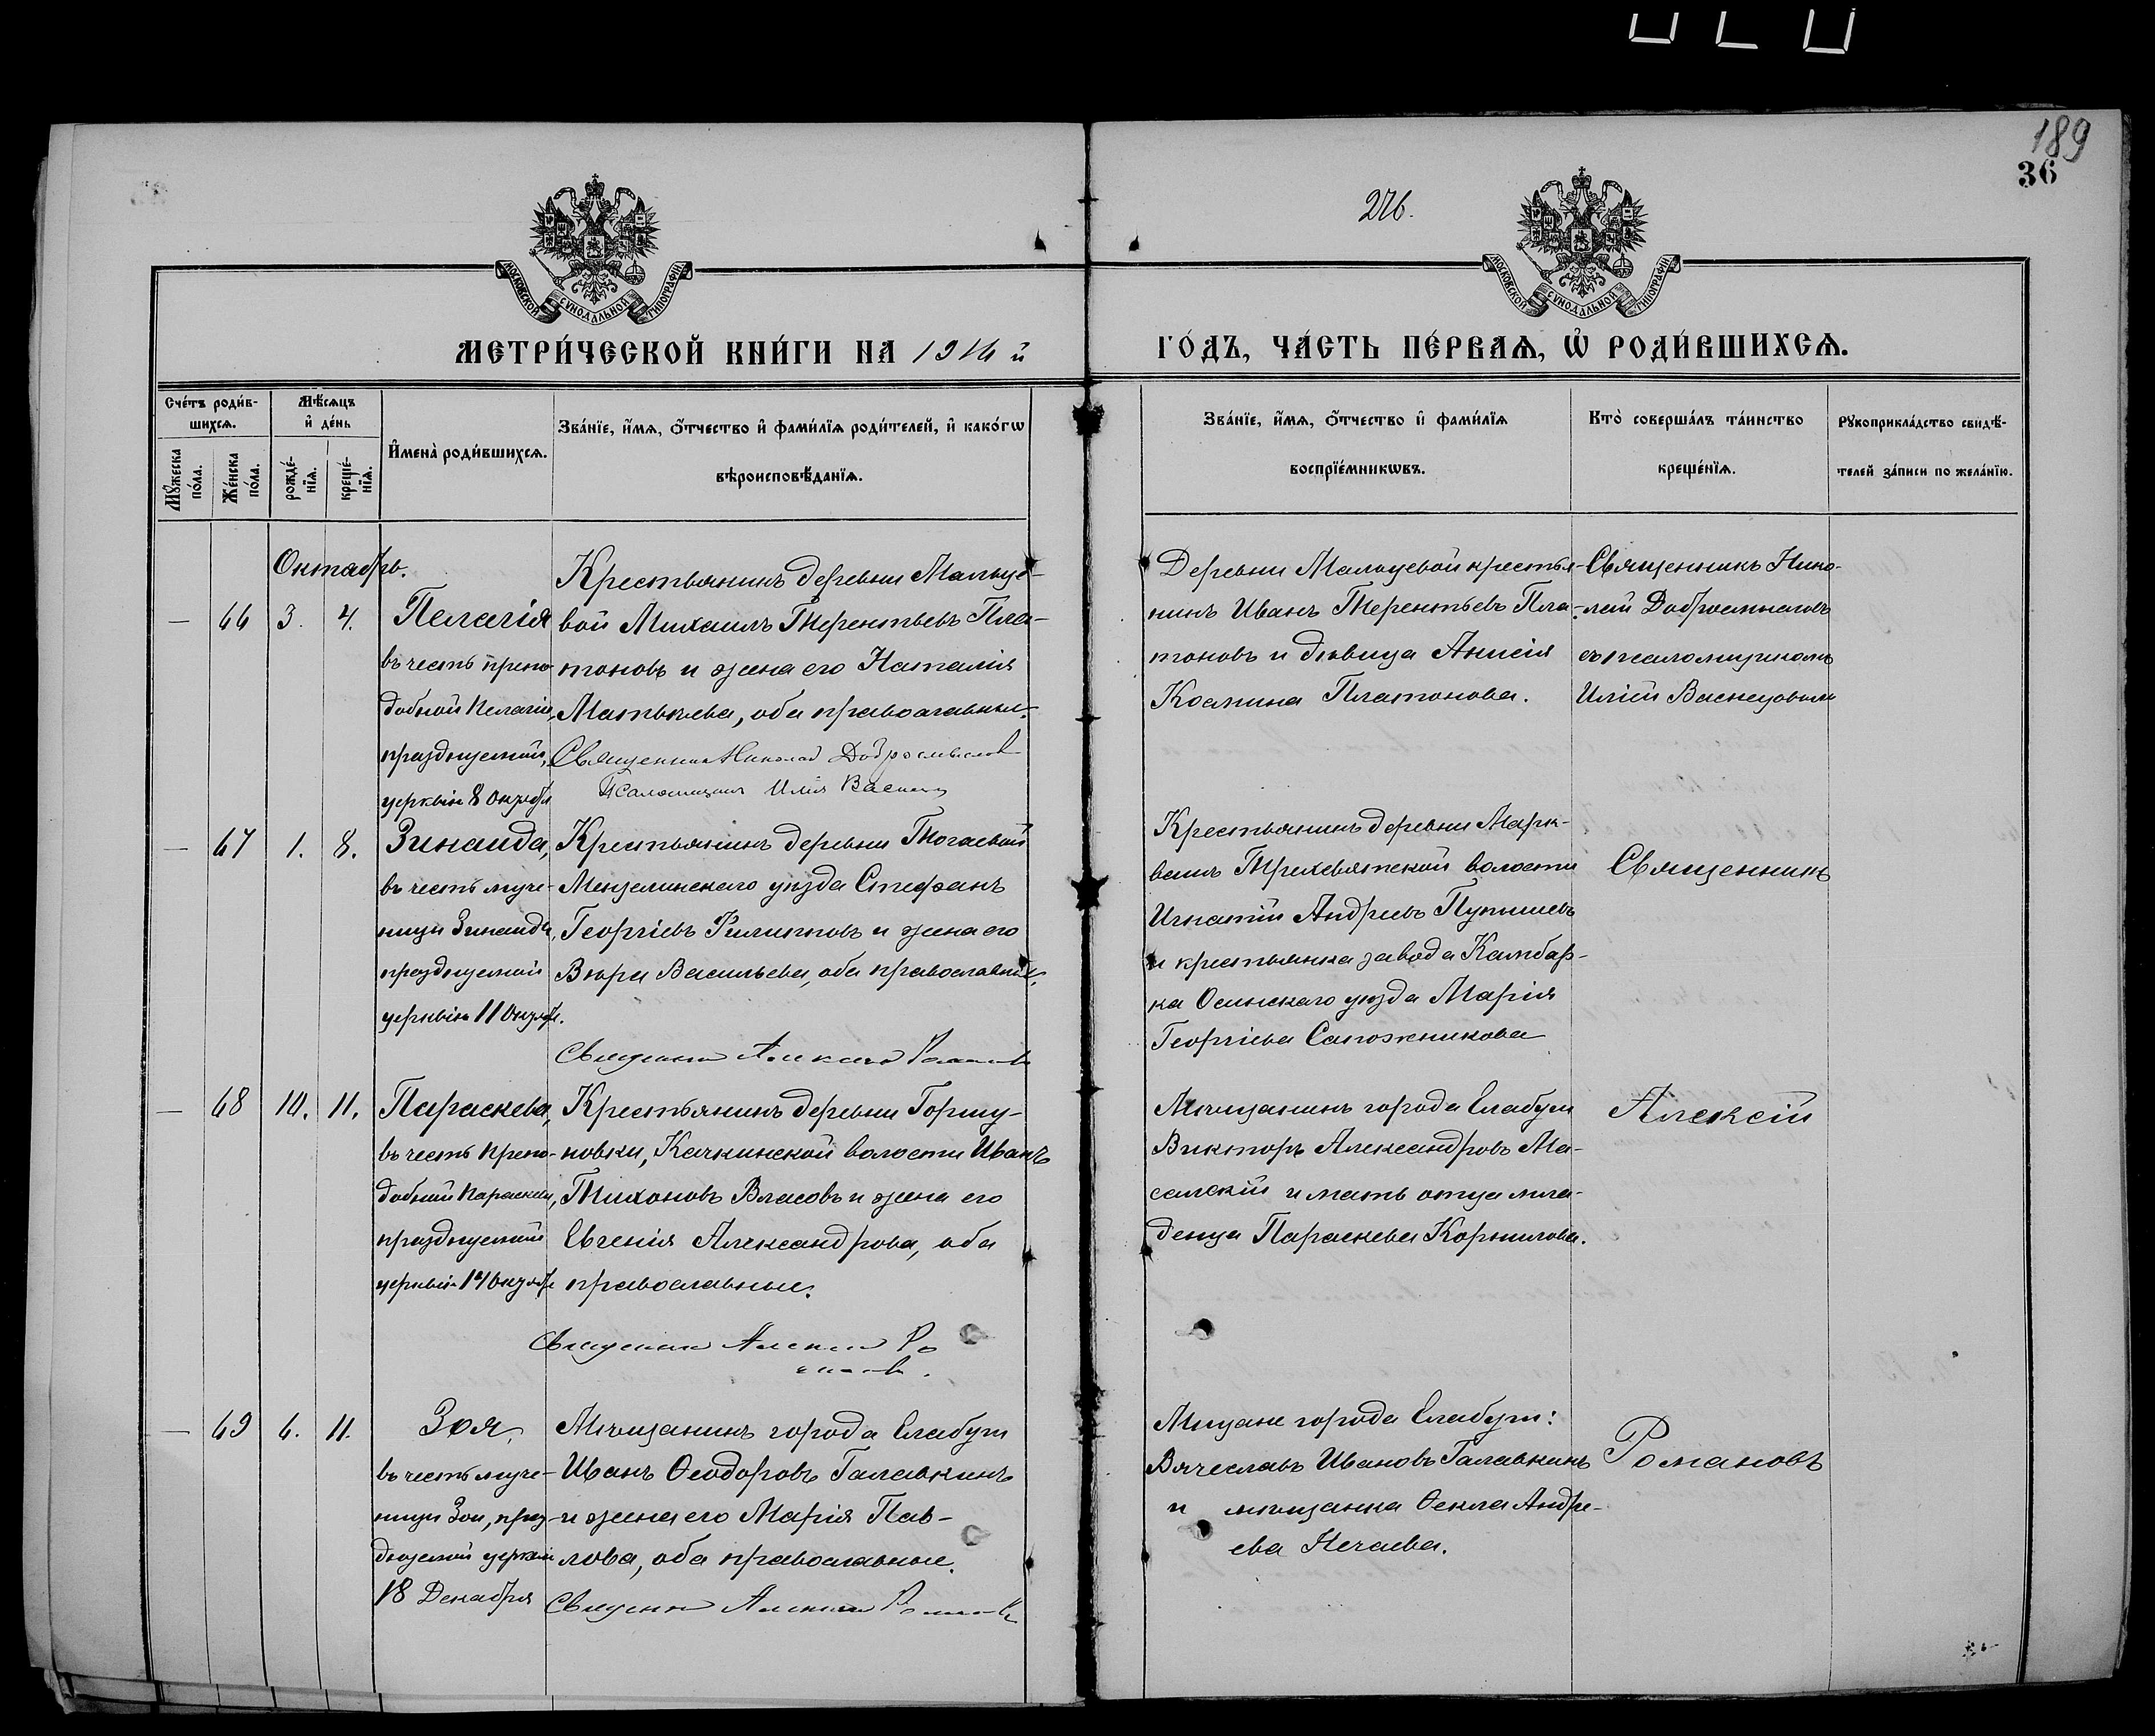 189
36
276.
МОСКОВСКОЙ СѴНОДАЛЬНОЙ ТИПОГРАФІИ
МОСКОВСКОЙ СѴНОДАЛЬНОЙ ТИПОГРАФІИ
МЕТРИ́ЧЕСКОЙ КНИ́ГИ НА 1914 й
ГО́ДЪ, ЧА́СТЬ ПЕ́РВАѦ, Ѡ҆ РОДИ́ВШИХСѦ.
Сче́тъ роди́в-
шихсѧ.
Мѣ́сѧцъ
и҆ де́нь
Мꙋ́жеска по́ла.
Же́нска по́ла.
рожде́-
нїѧ.
креще́-
нїѧ.
И҆мена̀ роди́вшихсѧ.
Зва́нїе, и҆́мѧ, ѻ҆́тчество и҆ фами́лїѧ роди́телей, и҆ како́гѡ
вѣроисповѣ́данїѧ.
Зва́нїе, и҆́мѧ, ѻ҆́тчество и҆ фами́лїѧ
воспрїе́мникѡвъ.
Кто̀ соверша́лъ та́инство
креще́нїѧ.
Рꙋкоприкла́дство свидѣ́-
телей за́писи по жела́нїю.
Октябрь.
— 66 3. 4.
Пелагія
въ честь препо-
добной Пелагіи,
празднуемой
церквію 8 Октября
Крестьянинъ деревни Мальце-
вой Михаилъ Терентьевъ Пла-
тоновъ и жена его Наталія
Матвѣева, оба православные.
Священникъ Николай Добросмысловъ
Псаломщикъ Илія Васнец
Деревни Мальцевой крестья-
нинъ Иванъ Терентьевъ Пла-
тоновъ и дѣвица Анисія
Космина Платонова.
Священникъ Нико-
лай Добросмысловъ
съ псаломщикомъ
Иліей Васнецовымъ
— 67 1. 8.
Зинаида,
въ честь муче-
ницы Зинаиды,
празднуемой
церквію 11 Октября.
Крестьянинъ деревни Тогаевой
Мензелинскаго уѣзда Стефанъ
Георгіевъ Филипповъ и жена его
Вѣра Васильева, оба православные.
Священникъ Алексій Романовъ
Крестьянинъ деревни Марк-
вашъ Трехсвятской волости
Игнатій Андреевъ Пупышевъ
и крестьянка завода Камбар-
ка Осинскаго уѣзда Марія
Георгіева Сапожникова
Священникъ
— 68 10. 11.
Параскева,
въ честь препо-
добной Параскевы,
празднуемой
церквію 14 Октября
Крестьянинъ деревни Горшу-
новки, Качкинской волости Иванъ
Тихоновъ Власовъ и жена его
Евгенія Александрова, оба
православные.
Священникъ Алексій Ро
мановъ.
Мѣщанинъ города Елабуги
Викторъ Александровъ Ма-
сальскій и мать отца мла-
денца Параскева Корнилова.
Алексій
— 69 6. 11.
Зоя,
въ честь муче-
ницы Зои, праз-
днуемой церквію
18 Декабря
Мѣщанинъ города Елабуги
Иванъ Ѳеодоровъ Галавкинъ
и жена его Марія Пав-
лова, оба православные.
Священникъ Алексій Романовъ
Мѣщане города Елабуги:
Вячеславъ Ивановъ Галавкинъ
и мѣщанка Ѳекла Андре-
ева Нечаева.
Романовъ